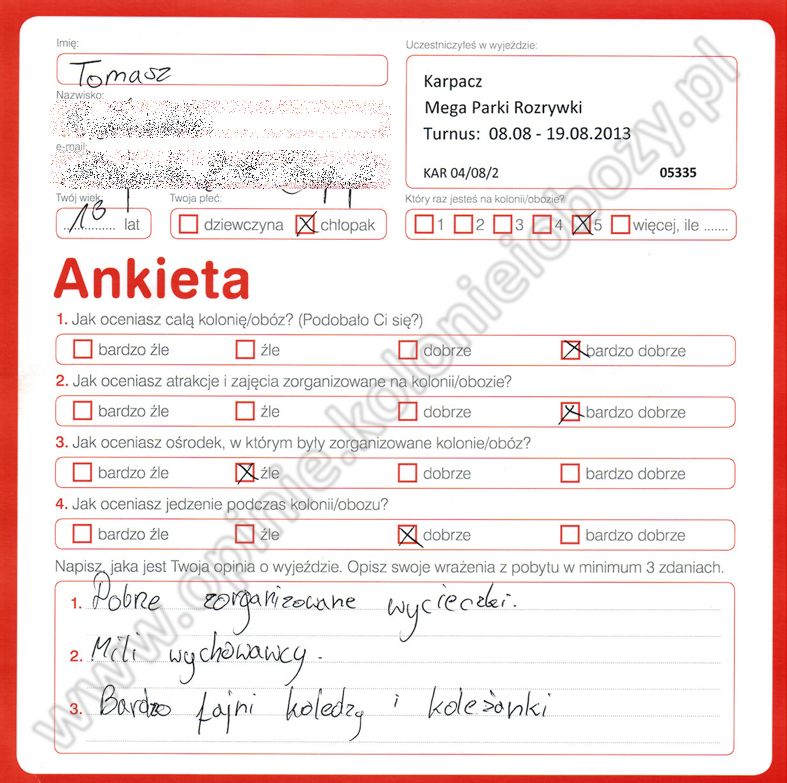 Imię:
Tomasz
Uczestniczyłeś w wyjeździe:
Karpacz
Mega Parki Rozrywki
Turnus: 08.08 - 19.08.2013
KAR 04/08/2 05335
Nazwisko:
e-mail:
Twój wiek:
13 lat
Twoja płeć:
dziewczyna chłopak
Który raz jesteś na kolonii/obozie?
1 2 3 4 5 więcej, ile .......
Ankieta
1. Jak oceniasz całą kolonię/obóz? (Podobało Ci się?)
bardzo źle źle dobrze bardzo dobrze
2. Jak oceniasz atrakcje i zajęcia zorganizowane na kolonii/obozie?
bardzo źle źle dobrze bardzo dobrze
3. Jak oceniasz ośrodek, w którym były zorganizowane kolonie/obóz?
bardzo źle źle dobrze bardzo dobrze
4. Jak oceniasz jedzenie podczas kolonii/obozu?
bardzo źle źle dobrze bardzo dobrze
Napisz, jaka jest Twoja opinia o wyjeździe. Opisz swoje wrażenia z pobytu w minimum 3 zdaniach.
1. Dobrze zorganizowane wycieczki.
2. Mili wychowawcy.
3. Bardzo fajni koledzy i koleżanki
www.opinie.kolonieiobozy.pl